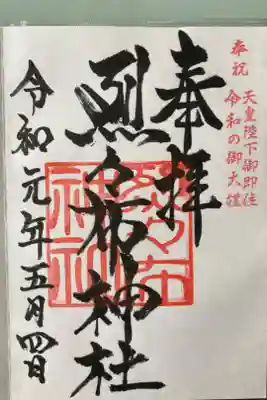 奉祝 天皇陛下御即位
令和の御大禮
奉拝
烈々布神社
烈々布神社
令和元年五月四日